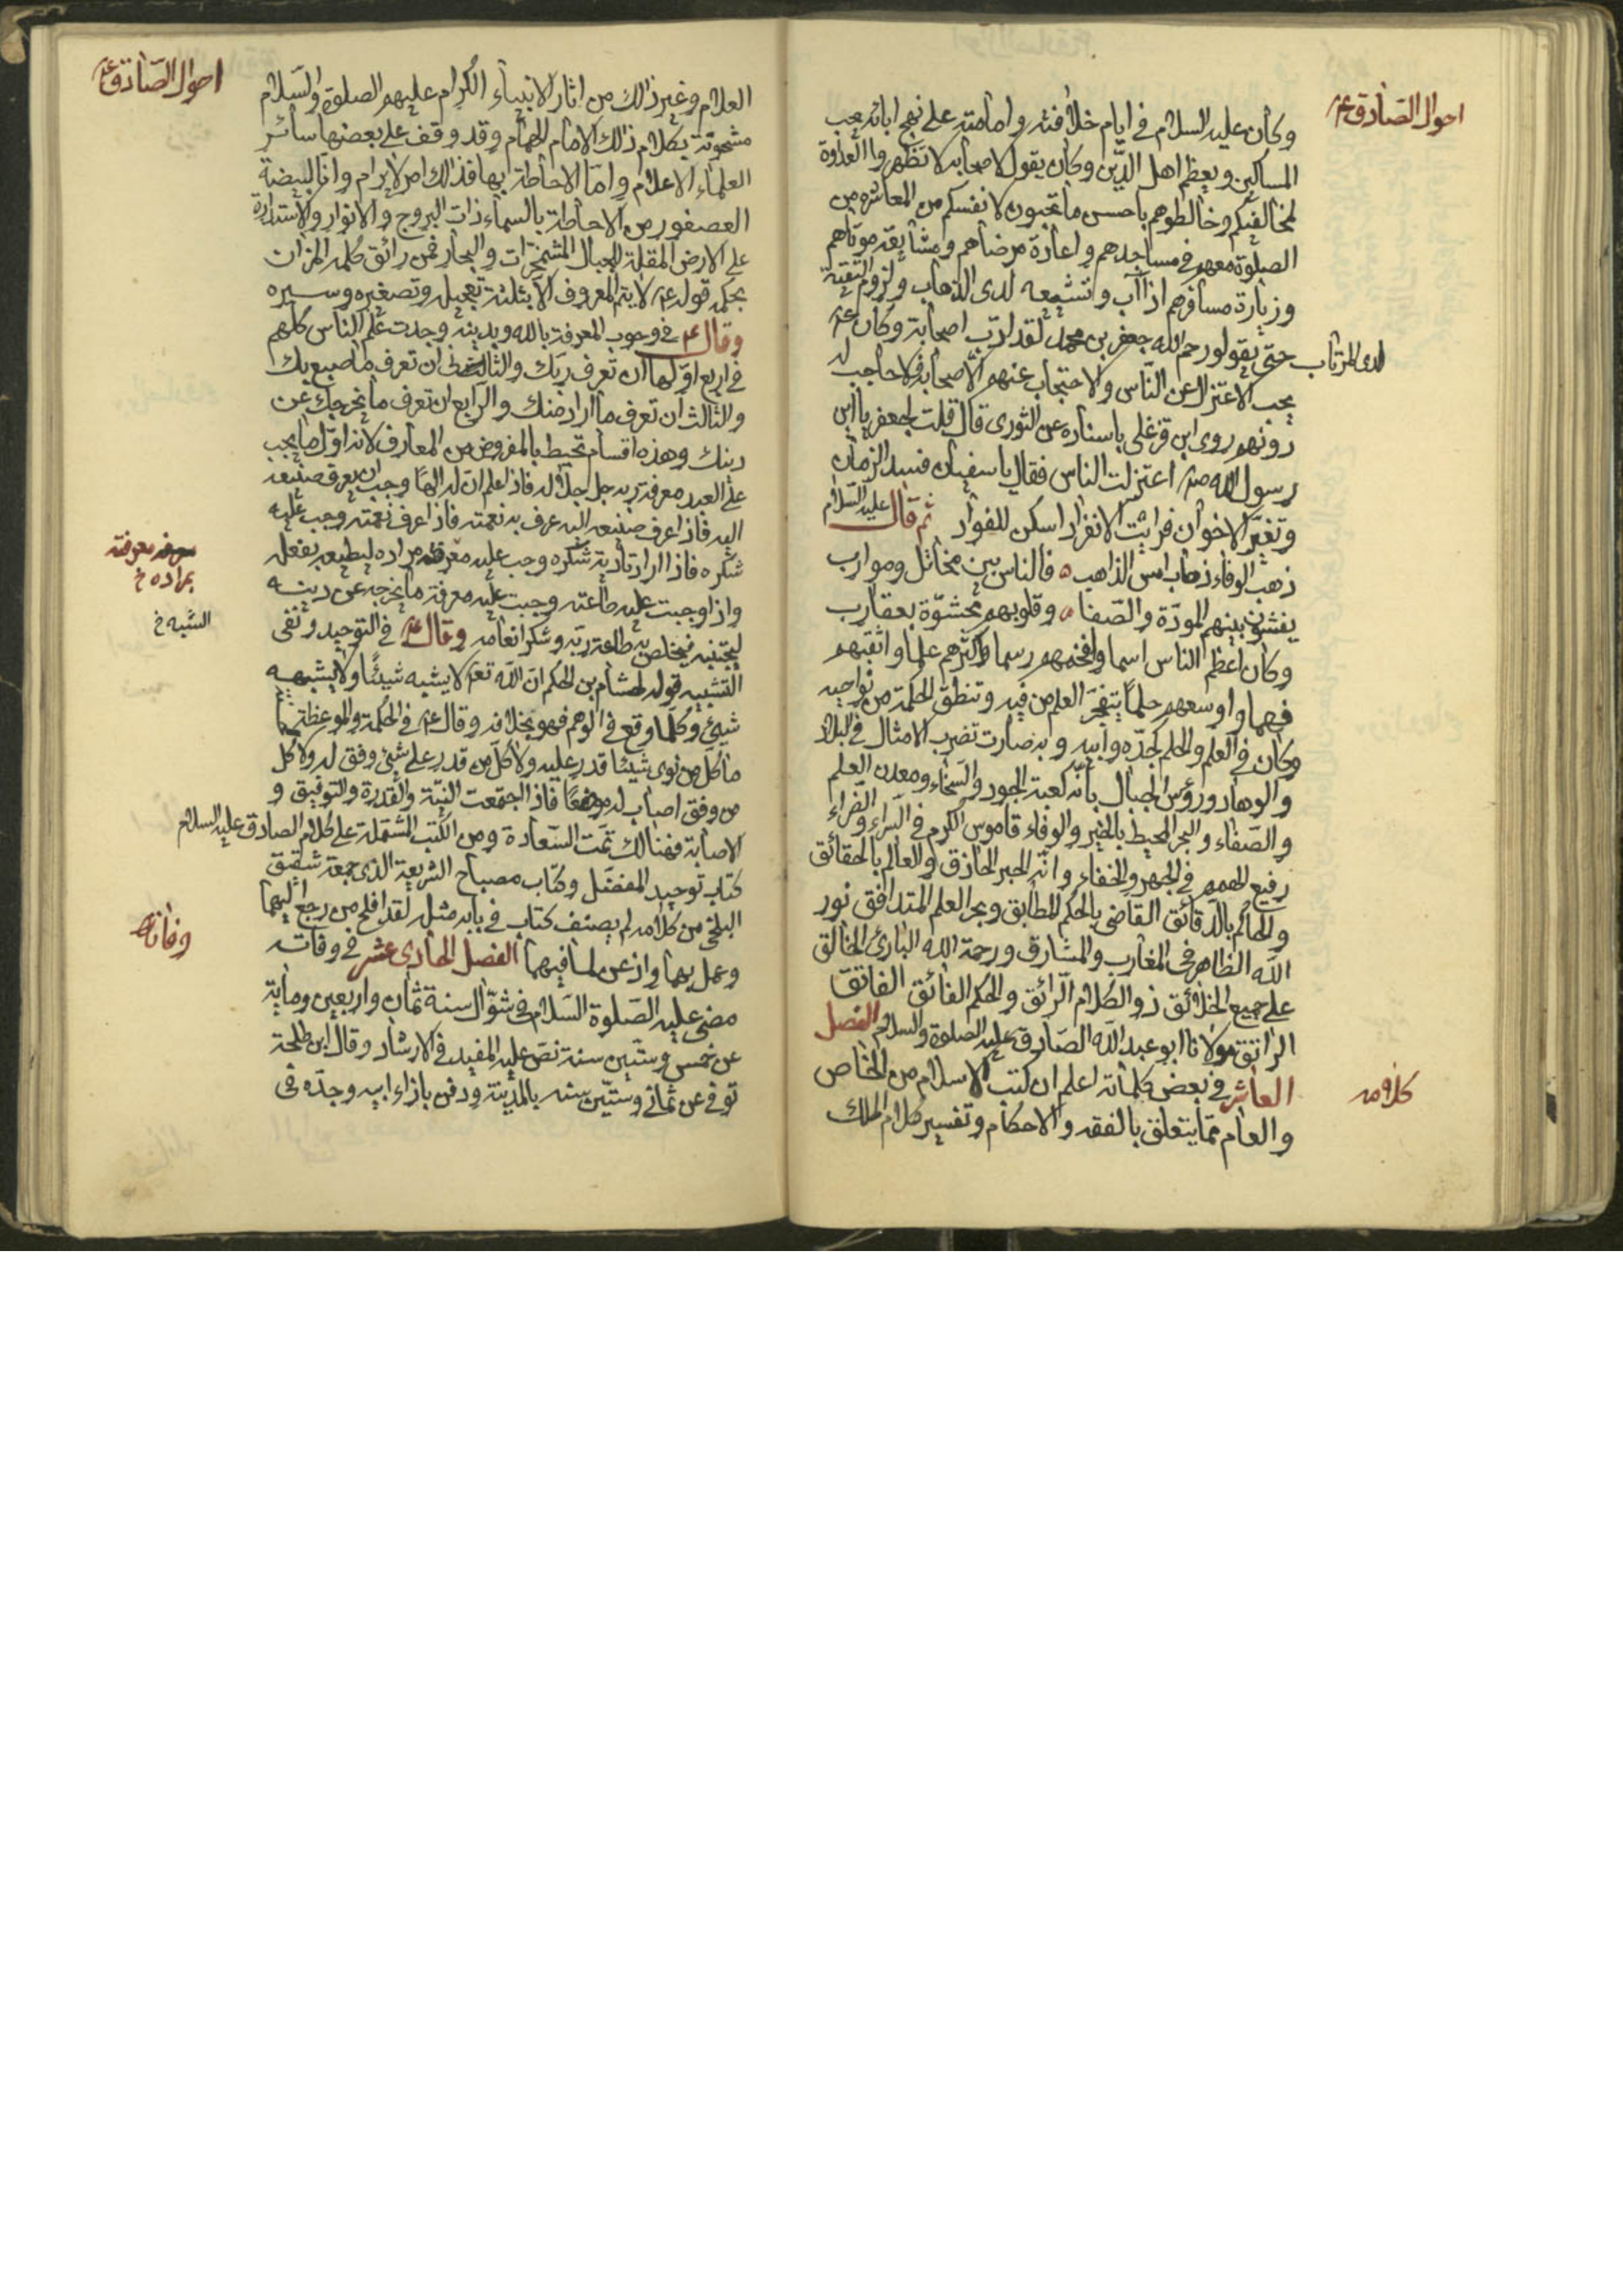 احوال الصادق ع
وكان عليه السلام في ايام خلافته وامامته على نهج ابائه يحب
المساكين ويعظم اهل الدين وكان يقول لاصحابه لا تظهروا العداوة
لمخالفيكم وخالطوهم باحسن ما تحبون لانفسكم من المعاشره من
الصلوة معهم في مساجدهم واعادة مرضاهم ومشايعة موتاهم
وزيارة مسافرهم اذا آب وتشيعه لدى الذهاب ولزوم التقية
لدى المرتاب
حتى يقولو رحم الله جعفر بن محمد لقد ادب اصحابة وكان ع
يحب الاعتزال عن الناس والاحتجاب عنهم الا اصحابه فلا حاجب له
دونهم روى ابن قزغلى باسناده عن الثورى قال قلت لجعفر يا ابن
رسول الله ص اعتزلت الناس فقال يا سفيان فسد الزمان
وتغير الاخوان فرايت الانفراد اسكن للفواد ثم قال عليه السلام
ذهب الوفاء ذهاب امس الذاهب ه فالناس بين مخاتل وموارب
يفشون بينهم المودة والصفا ه وقلوبهم محشوة بعقارب
وكان اعظم الناس اسما وافخمهم رسما واكثرهم علما واثقبهم
فهما واوسعهم حلماً يتفجر العلم من فيه وتنطق الحكمة من نواحيه
وكان في العلم والحلم كجده وابيه وبه صارت تضرب الامثال في البلاد
والوهاد ورؤس الجبال بانه كعبة الجود والسخاء ومعدن العلم
والصفاء والبحر المحيط بالخير والوفاء قاموس الكرم في السراء والضراء
رفيع الهمم في الجهر والخفاء وانه الحبر الحاذق والعالم بالحقائق
والحاكم بالدقائق القاضى بالحكم المطابق وبحر العلم المتدافق نور
الله الظاهر في المغارب والمشارق ورحمة الله البارئ الخالق
على جميع الخلائق ذو الكلام الرائق والحكم الفائق الفاتق
الراتق مولانا ابو عبد الله الصادق عليه الصلوة والسلام الفصل
العاشر في بعض كلماته اعلم ان كتب الاسلام من الخاص
كلامه
والعام مما يتعلق بالفقه والاحكام وتفسير كلام الملك
احوال الصادق ع
العلام وغير ذالك من اثار الانبياء الكرام عليهم الصلوة والسلام
مشحونة بكلام ذالك الامام الهمام وقد وقف على بعضها سائر
العلماء الاعلام واما الاحاطة بها فذالك امر لا يرام وانا لبيضة
العصفور من الاحاطة بالسماء ذات البروج والانوار والاستدارة
على الارض المقلة للجبال المشمخرات والبحار فمن رائق كلمه المزان
بحكمه قوله ع لا يتم المعروف الا بثلثة تعجيله وتصغيره وستره
وقال ع في وجوب المعرفة بالله وبدينه وجدت علم الناس كلهم
في اربع اولها ان تعرف ربك والثانى ان تعرف ما صنع بك
والثالث ان تعرف ما اراد منك والرابع ان تعرف ما يخرجك عن
دينك وهذه اقسام تحيط بالمفروض من المعارف لانه اول ما يجب
على العبد معرفة ربه جل جلاله فاذا علم ان له الهًا وجب ان يعرف صنيعه
اليه فاذا عرف صنيعه اليه عرف به نعمته فاذا عرف نعمته وجب عليه
شكره فاذا اراد تأدية شكره وجب عليه معرفة مراده ليطيعه بفعله
معرفة
بمراده خ
واذا وجبت عليه طاعته وجبت عليه معرفة ما يخرجه عن دينه
الشبه خ
ليجتنبه فيخلص به طاعة ربه وشكر انعامه وقال ع في التوحيد ونفى
التشبيه قوله لهشام بن الحكم ان الله تع لا يشبه شيئًا ولا يشبهه
شيئ وكلما وقع في الوهم فهو بخلافه وقال ع في الحكمة والموعظة
ما كل من نوى شيئا قدر عليه ولا كل من قدر على شئ وفق له ولا كل
من وفق اصاب له موضعًا فاذا اجتمعت النية والقدرة والتوفيق و
الاصابة فهنالك تمت السعادة ومن الكتب المشتملة على كلام الصادق عليه السلام
كتاب توحيد المفضل وكتاب مصباح الشريعة الذى جمعه شقيق
البلخى من كلامه لم يصنف كتاب في بابه مثله لقد افلح من رجع اليهما
وعمل بهما واذعن لما فيهما الفصل الحادى عشر في وفاته
وفاته
مضى عليه الصلوة السلام في شوال سنة ثمان واربعين وماية
عن خمس وستين سنة نص عليه المفيد في الارشاد وقال ابن طلحة
توفى عن ثمانى وستين سنه بالمدينة ودفن بازاء ابيه وجده فى